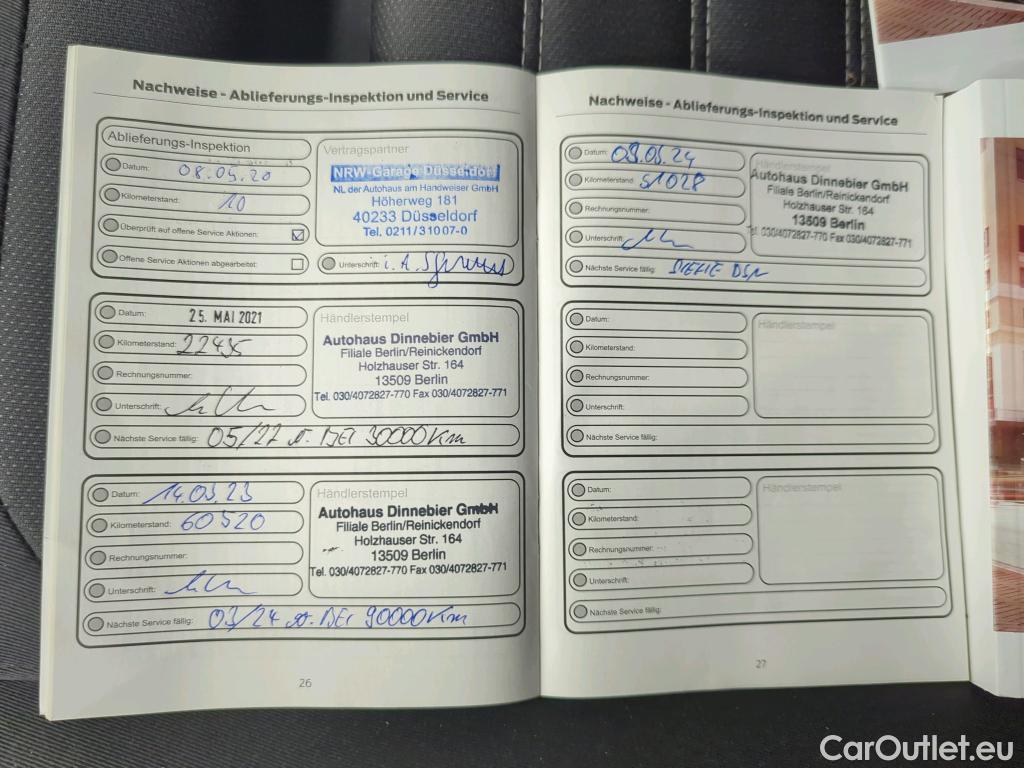 Nachweise - Ablieferungs-Inspektion und Service
Ablieferungs-Inspektion
Datum: 08.05.20
Kilometerstand: 10
Überprüft auf offene Service Aktionen:
Offene Service Aktionen abgearbeitet:
Vertragspartner
NRW-Garage Düsseldorf
NL der Autohaus am Handweiser GmbH
Höherweg 181
40233 Düsseldorf
Tel. 0211/31007-0
Unterschrift: i.A.
Datum: 25. MAI 2021
Kilometerstand: 22495
Rechnungsnummer:
Unterschrift:
Nächste Service fällig: 05/22 o. BEI 30000Km
Händlerstempel
Autohaus Dinnebier GmbH
Filiale Berlin/Reinickendorf
Holzhauser Str. 164
13509 Berlin
Tel. 030/4072827-770 Fax 030/4072827-771
Datum: 14.03.23
Kilometerstand: 60520
Rechnungsnummer:
Unterschrift:
Nächste Service fällig: 03/24 o. BEI 90000Km
Händlerstempel
Autohaus Dinnebier GmbH
Filiale Berlin/Reinickendorf
Holzhauser Str. 164
13509 Berlin
Tel. 030/4072827-770 Fax 030/4072827-771
26
Nachweise - Ablieferungs-Inspektion und Service
Datum:
Kilometerstand:
Rechnungsnummer:
Unterschrift:
Nächste Service fällig: SIEHE DSN
Händlerstempel
Autohaus Dinnebier GmbH
Filiale Berlin/Reinickendorf
Holzhauser Str. 164
13509 Berlin
Tel. 030/4072827-770 Fax 030/4072827-771
Datum:
Kilometerstand:
Rechnungsnummer:
Unterschrift:
Nächste Service fällig:
Händlerstempel
Datum:
Kilometerstand:
Rechnungsnummer:
Unterschrift:
Nächste Service fällig:
Händlerstempel
27
CarOutlet.eu